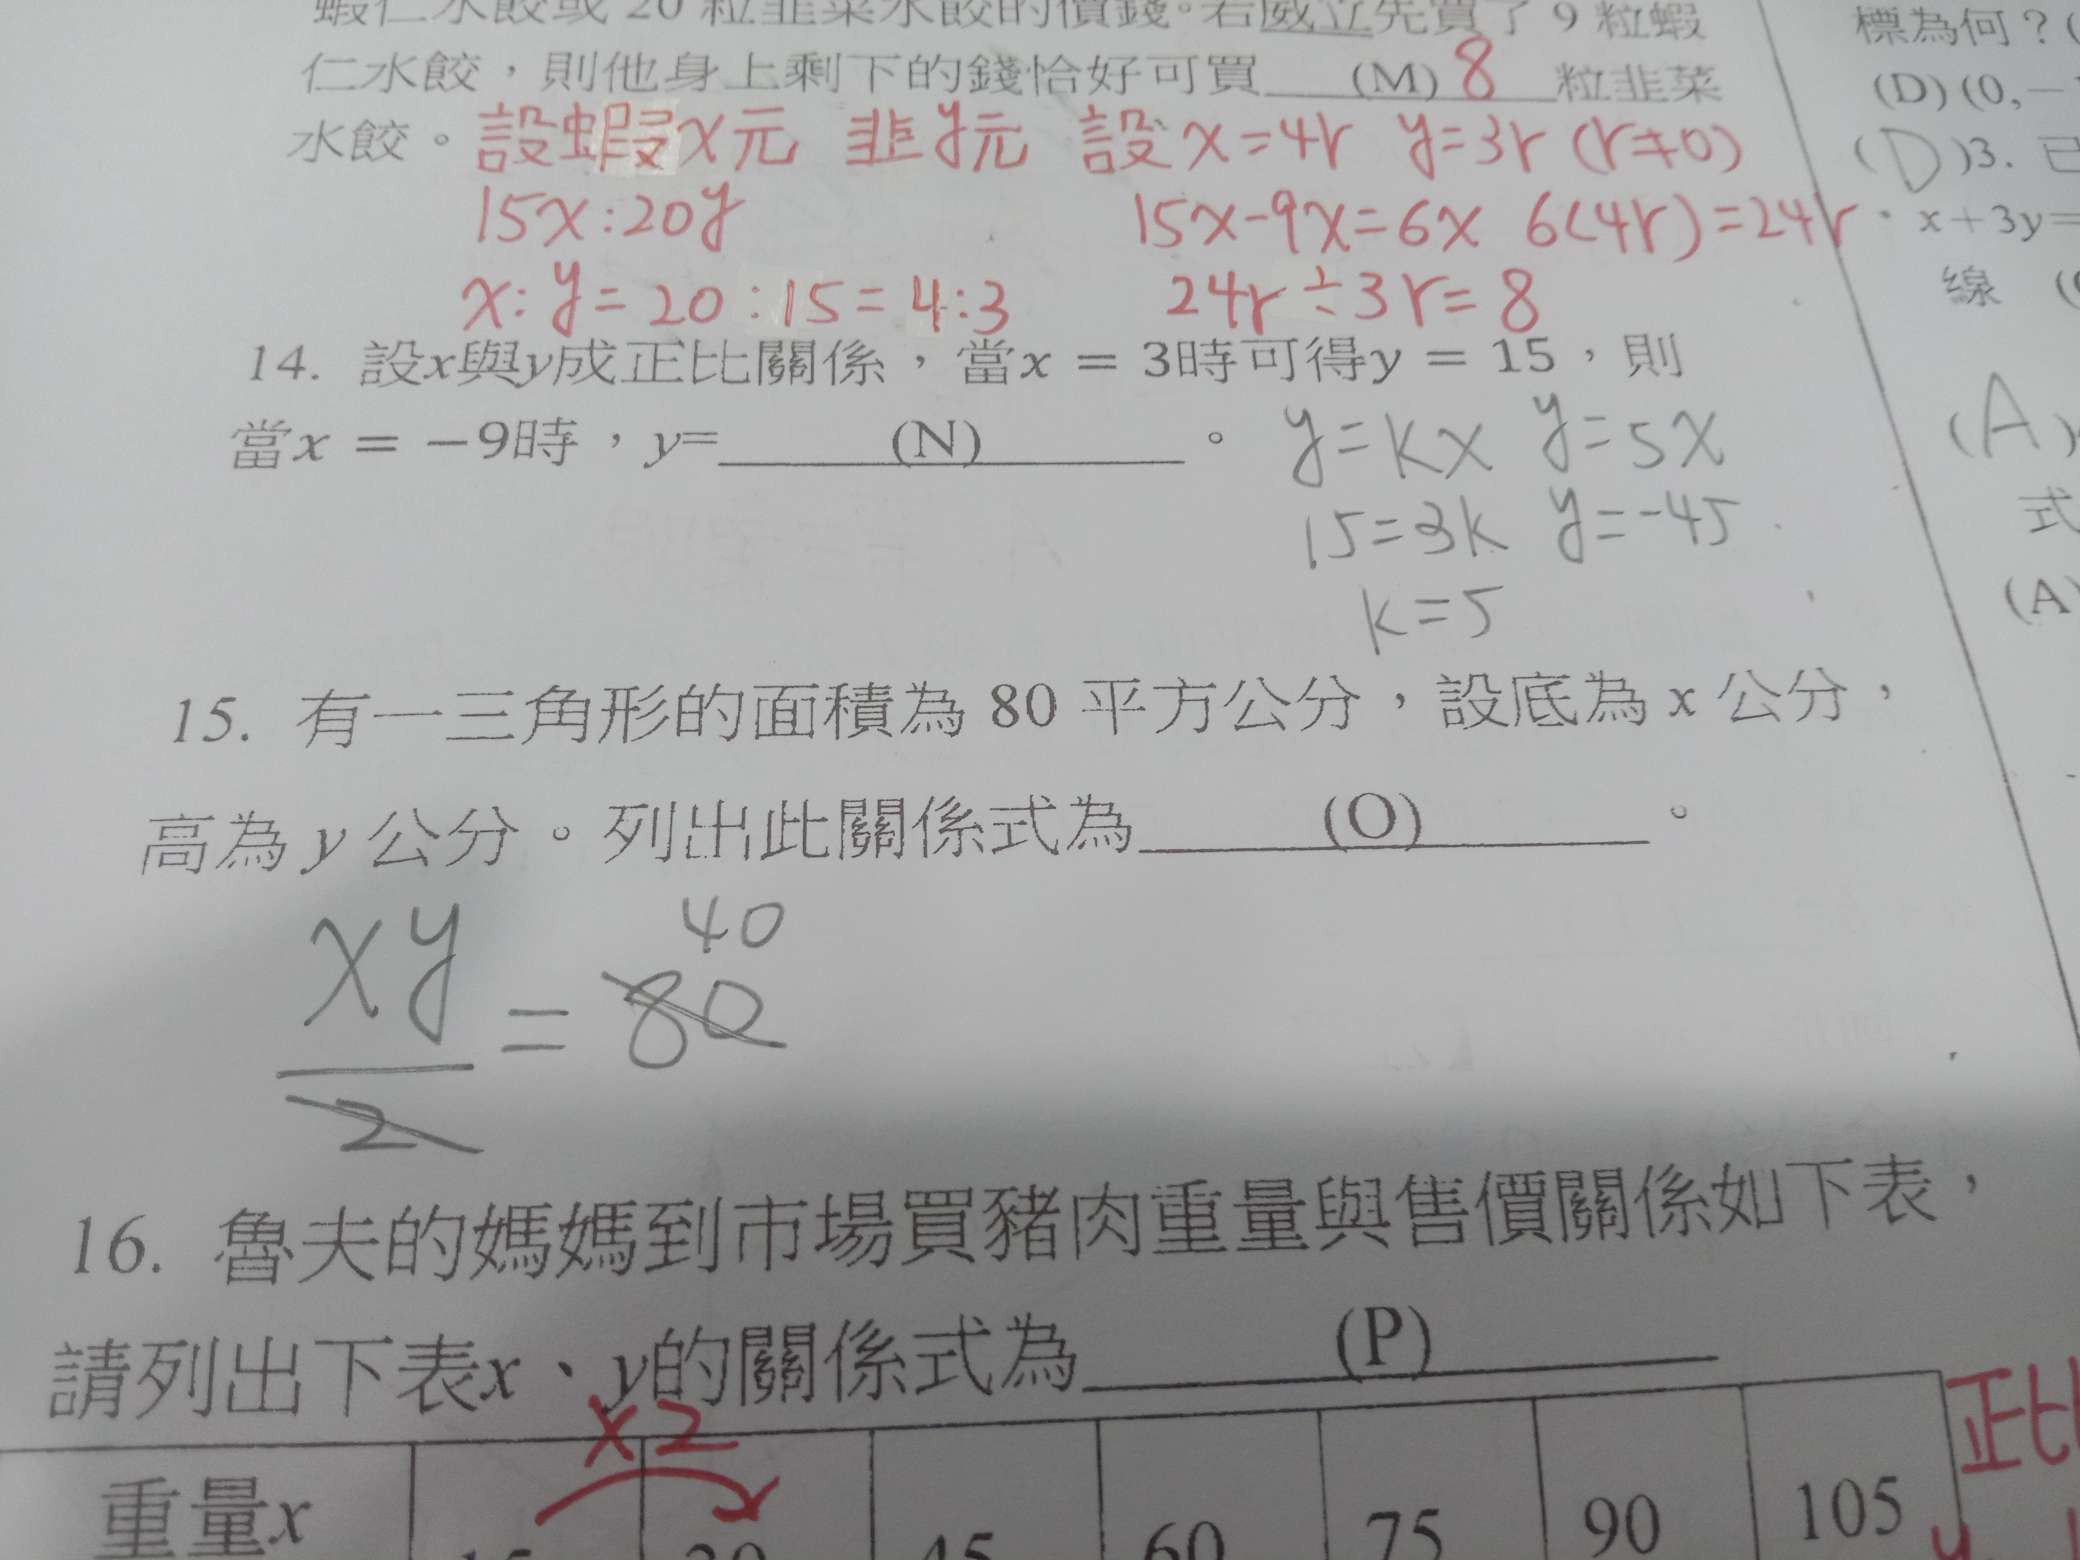 蝦仁水餃或 20 粒韭菜水餃的價錢。若威立先買了 9 粒蝦
仁水餃，則他身上剩下的錢恰好可買 (M) 8 粒韭菜
水餃。設蝦x元 韭y元 設x=4r y=3r (r≠0)
15x:20y
15x-9x=6x 6(4r)=24r
x:y=20:15=4:3
24r÷3r=8
14. 設x與y成正比關係，當x = 3時可得y = 15，則
當x = −9時，y= (N) 。
y=kx y=5x
15=3k y=-45
k=5
15. 有一三角形的面積為 80 平方公分，設底為 x 公分，
高為 y 公分。列出此關係式為 (O) 。
40
xy/2=80
16. 魯夫的媽媽到市場買豬肉重量與售價關係如下表，
請列出下表x、y的關係式為 (P)
x2
正比
重量x 45 60 75 90 105
標為何？(
(D) (0,−
(D)3. 已
x+3y=
線 (
(A)
式
(A)